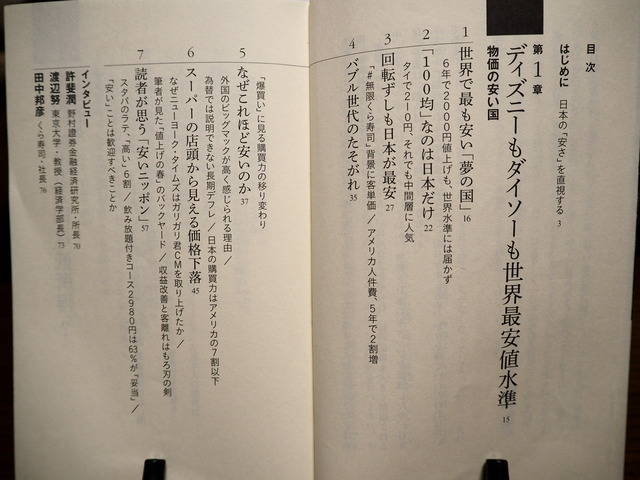 目次
はじめに 日本の「安さ」を直視する 3
第1章
ディズニーもダイソーも世界最安値水準 15
物価の安い国
1 世界で最も安い「夢の国」 16
6年で2000円値上げも、世界水準には届かず
2 「100均」なのは日本だけ 22
タイで210円、それでも中間層に人気
3 回転ずしも日本が最安 27
「#無限くら寿司」背景に客単価／アメリカ人件費、5年で2割増
4 バブル世代のたそがれ 35
「爆買い」に見る購買力の移り変わり
5 なぜこれほど安いのか 37
外国のビッグマックが高く感じられる理由／
為替では説明できない長期デフレ／日本の購買力はアメリカの7割以下
6 スーパーの店頭から見える価格下落 45
なぜニューヨーク・タイムズはガリガリ君CMを取り上げたか／
筆者が見た「値上げの春」のバックヤード／収益改善と客離れはもろ刃の剣
7 読者が思う「安いニッポン」 57
スタバのラテ、「高い」6割／飲み放題付きコース2980円は63%が「妥当」／
「安い」ことは歓迎すべきことか
インタビュー
許斐潤 野村證券金融経済研究所・所長 70
渡辺努 東京大学・教授（経済学部長） 73
田中邦彦 くら寿司・社長 76